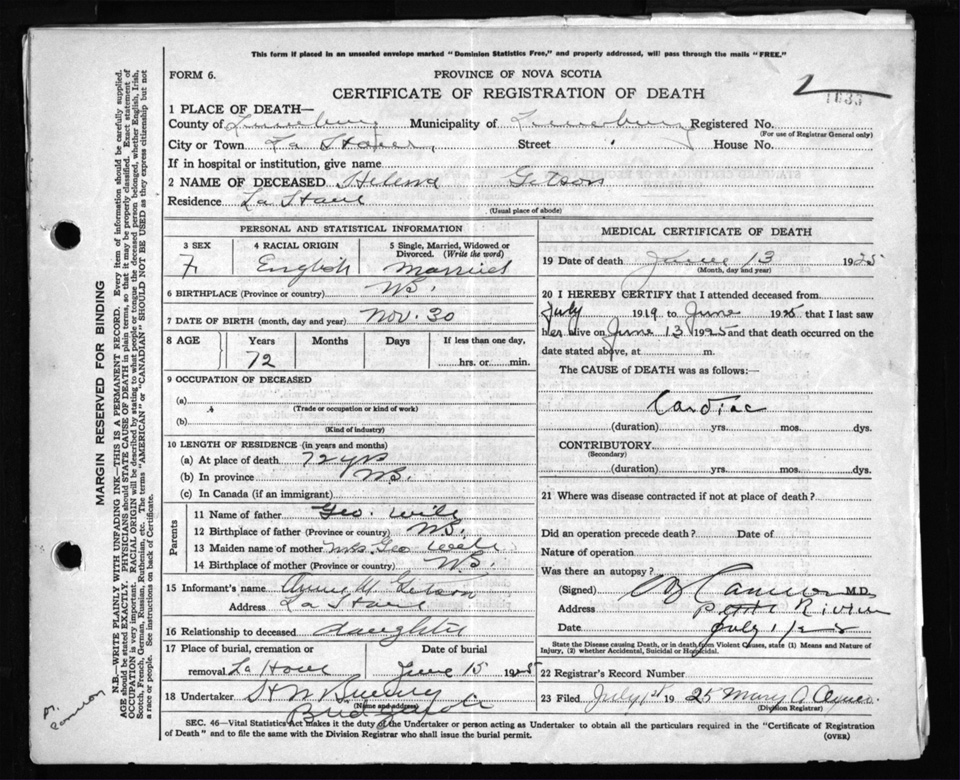 This form if placed in an unsealed envelope marked "Dominion Statistics Free," and properly addressed, will pass through the mails "FREE."
FORM 6. PROVINCE OF NOVA SCOTIA
CERTIFICATE OF REGISTRATION OF DEATH
2 1633
1 PLACE OF DEATH—
County of Lunenburg Municipality of Lunenburg Registered No.
(For use of Registrar General only)
City or Town Street House No.
If in hospital or institution, give name
2 NAME OF DECEASED Helena Getson
Residence
(Usual place of abode)
PERSONAL AND STATISTICAL INFORMATION
3 SEX 4 RACIAL ORIGIN 5 Single, Married, Widowed or Divorced. (Write the word)
F English Married
6 BIRTHPLACE (Province or country) N.S.
7 DATE OF BIRTH (month, day and year) Nov. 30
8 AGE Years Months Days If less than one day,
72 hrs. or min.
9 OCCUPATION OF DECEASED
(a)
(Trade or occupation or kind of work)
(b)
(Kind of industry)
10 LENGTH OF RESIDENCE (in years and months)
(a) At place of death 72 yrs
(b) In province N.S.
(c) In Canada (if an immigrant)
Parents
11 Name of father Geo. Wile
12 Birthplace of father (Province or country) N.S.
13 Maiden name of mother Mrs. Geo Wile
14 Birthplace of mother (Province or country) N.S.
15 Informant's name Getson
Address
16 Relationship to deceased daughter
17 Place of burial, cremation or Date of burial
removal La Have June 15 1925
18 Undertaker
(Name and address)
MEDICAL CERTIFICATE OF DEATH
19 Date of death June 13 1925
(Month, day and year)
20 I HEREBY CERTIFY that I attended deceased from
July 1919 to June 1925 that I last saw
her alive on June 13 1925 and that death occurred on the
date stated above, at m.
The CAUSE of DEATH was as follows:—
Cardiac
(duration) yrs. mos. dys.
CONTRIBUTORY
(Secondary)
(duration) yrs. mos. dys.
21 Where was disease contracted if not at place of death?
Did an operation precede death? Date of
Nature of operation
Was there an autopsy?
(Signed) Cameron M.D.
Address Petite Riviere
Date July 1/25
State the Disease causing Death, or in death from Violent Causes, state (1) Means and Nature of
Injury, (2) whether Accidental, Suicidal or Homicidal.
22 Registrar's Record Number
23 Filed July 1925 Mary A.
(Division Registrar)
SEC. 46—Vital Statistics Act makes it the duty of the Undertaker or person acting as Undertaker to obtain all the particulars required in the "Certificate of Registration
of Death" and to file the same with the Division Registrar who shall issue the burial permit. (OVER)
MARGIN RESERVED FOR BINDING
N.B.—WRITE PLAINLY WITH UNFADING INK—THIS IS A PERMANENT RECORD. Every item of information should be carefully supplied.
AGE should be stated EXACTLY. PHYSICIANS should STATE CAUSE OF DEATH in plain terms, so that it may be properly classified. Exact statement of
OCCUPATION is very important. RACIAL ORIGIN will be described by stating to what people or tongue the deceased person belonged, whether English, Irish,
Scotch, French, German, Russian, Ruthenian, etc. The terms "AMERICAN" or "CANADIAN" SHOULD NOT BE USED as they express citizenship but not
a race or people. See instructions on back of Certificate.
Dr. Cameron